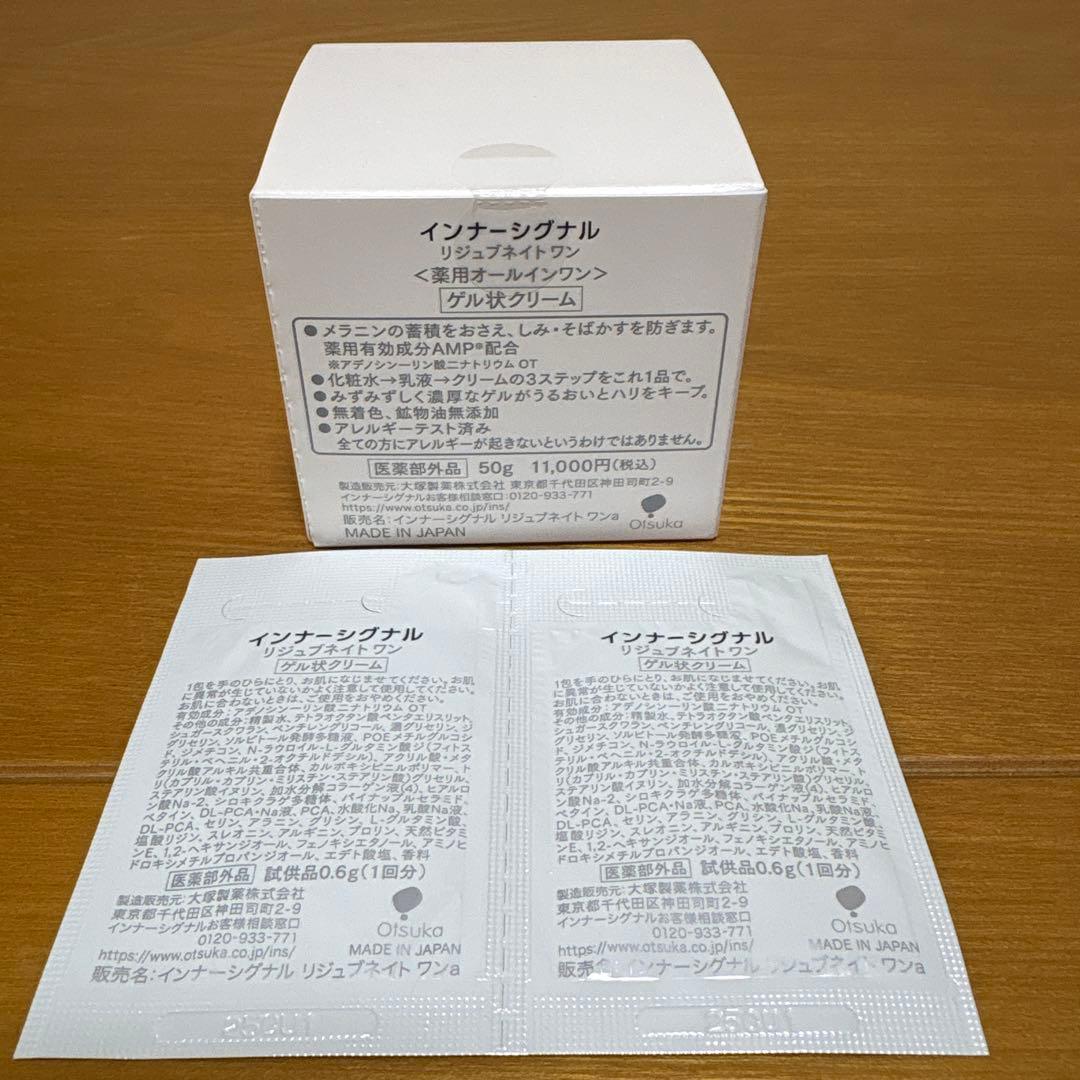 インナーシグナル
リジュブネイト ワン
<薬用オールインワン>
ゲル状クリーム
●メラニンの蓄積をおさえ、しみ・そばかすを防ぎます。
薬用有効成分AMP※配合
※アデノシン一リン酸二ナトリウム OT
●化粧水→乳液→クリームの3ステップをこれ1品で。
●みずみずしく濃厚なゲルがうるおいとハリをキープ。
●無着色、鉱物油無添加
●アレルギーテスト済み
全ての方にアレルギーが起きないというわけではありません。
医薬部外品 50g 11,000円(税込)
製造販売元:大塚製薬株式会社 東京都千代田区神田司町2-9
インナーシグナルお客様相談窓口:0120-933-771
https://www.otsuka.co.jp/ins/
販売名:インナーシグナル リジュブネイト ワンa
MADE IN JAPAN
Otsuka
インナーシグナル
リジュブネイト ワン
ゲル状クリーム
1包を手のひらにとり、お肌になじませてください。お肌
に異常が生じていないかよく注意して使用してください。
お肌に合わないときは、ご使用をおやめください。
有効成分:アデノシン一リン酸二ナトリウム OT
その他の成分:精製水、テトラオクタン酸ペンタエリスリット、
シュガースクワラン、ペンチレングリコール、濃グリセリン、ジ
グリセリン、ソルビトール発酵多糖液、POEメチルグルコシ
ド、ジメチコン、N-ラウロイル-L-グルタミン酸ジ(フィトス
テリル・ベヘニル・2-オクチルドデシル)、アクリル酸・メタ
クリル酸アルキル共重合体、カルボキシビニルポリマー、ト
リ(カプリル・カプリン・ミリスチン・ステアリン酸)グリセリル、
ステアリン酸イヌリン、加水分解コラーゲン液(4)、ヒアルロ
ン酸Na-2、シロキクラゲ多糖体、パイナップルセラミド、
ベタイン、DL-PCA・Na液、PCA、水酸化Na、乳酸Na液、
DL-PCA、セリン、アラニン、グリシン、L-グルタミン酸、
塩酸リジン、スレオニン、アルギニン、プロリン、天然ビタミ
ンE、1,2-ヘキサンジオール、フェノキシエタノール、アミノヒ
ドロキシメチルプロパンジオール、エデト酸塩、香料
医薬部外品 試供品0.6g(1回分)
製造販売元:大塚製薬株式会社
東京都千代田区神田司町2-9
インナーシグナルお客様相談窓口
0120-933-771
https://www.otsuka.co.jp/ins/
Otsuka
MADE IN JAPAN
販売名:インナーシグナル リジュブネイト ワンa
インナーシグナル
リジュブネイト ワン
ゲル状クリーム
1包を手のひらにとり、お肌になじませてください。お肌
に異常が生じていないかよく注意して使用してください。
お肌に合わないときは、ご使用をおやめください。
有効成分:アデノシン一リン酸二ナトリウム OT
その他の成分:精製水、テトラオクタン酸ペンタエリスリット、
シュガースクワラン、ペンチレングリコール、濃グリセリン、ジ
グリセリン、ソルビトール発酵多糖液、POEメチルグルコシ
ド、ジメチコン、N-ラウロイル-L-グルタミン酸ジ(フィトス
テリル・ベヘニル・2-オクチルドデシル)、アクリル酸・メタ
クリル酸アルキル共重合体、カルボキシビニルポリマー、ト
リ(カプリル・カプリン・ミリスチン・ステアリン酸)グリセリル、
ステアリン酸イヌリン、加水分解コラーゲン液(4)、ヒアルロ
ン酸Na-2、シロキクラゲ多糖体、パイナップルセラミド、
ベタイン、DL-PCA・Na液、PCA、水酸化Na、乳酸Na液、
DL-PCA、セリン、アラニン、グリシン、L-グルタミン酸、
塩酸リジン、スレオニン、アルギニン、プロリン、天然ビタミ
ンE、1,2-ヘキサンジオール、フェノキシエタノール、アミノヒ
ドロキシメチルプロパンジオール、エデト酸塩、香料
医薬部外品 試供品0.6g(1回分)
製造販売元:大塚製薬株式会社
東京都千代田区神田司町2-9
インナーシグナルお客様相談窓口
0120-933-771
https://www.otsuka.co.jp/ins/
Otsuka
MADE IN JAPAN
販売名:インナーシグナル リジュブネイト ワンa